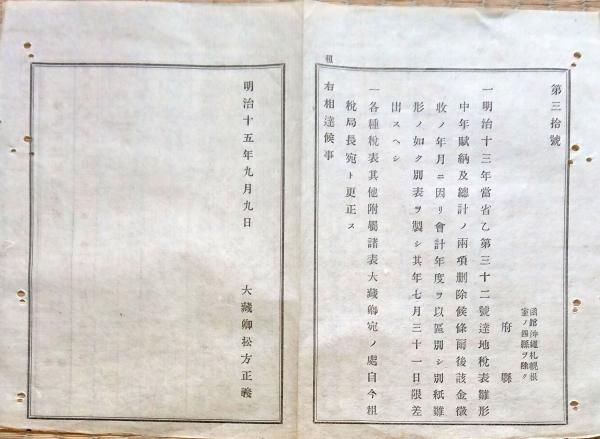 租
第三拾號
函館沖繩札幌根
室ノ四縣ヲ除ク
府縣
一明治十三年當省乙第三十二號達地稅表雛形
中年賦納及總計ノ兩項刪除候條爾後該金徵
收ノ年月ニ因リ會計年度ヲ以區別シ別紙雛
形ノ如ク別表ヲ製シ其年七月三十一日限差
出スヘシ
一各種稅表其他附屬諸表大藏卿宛ノ處自今租
稅局長宛ト更正ス
右相達候事
明治十五年九月九日
大藏卿松方正義